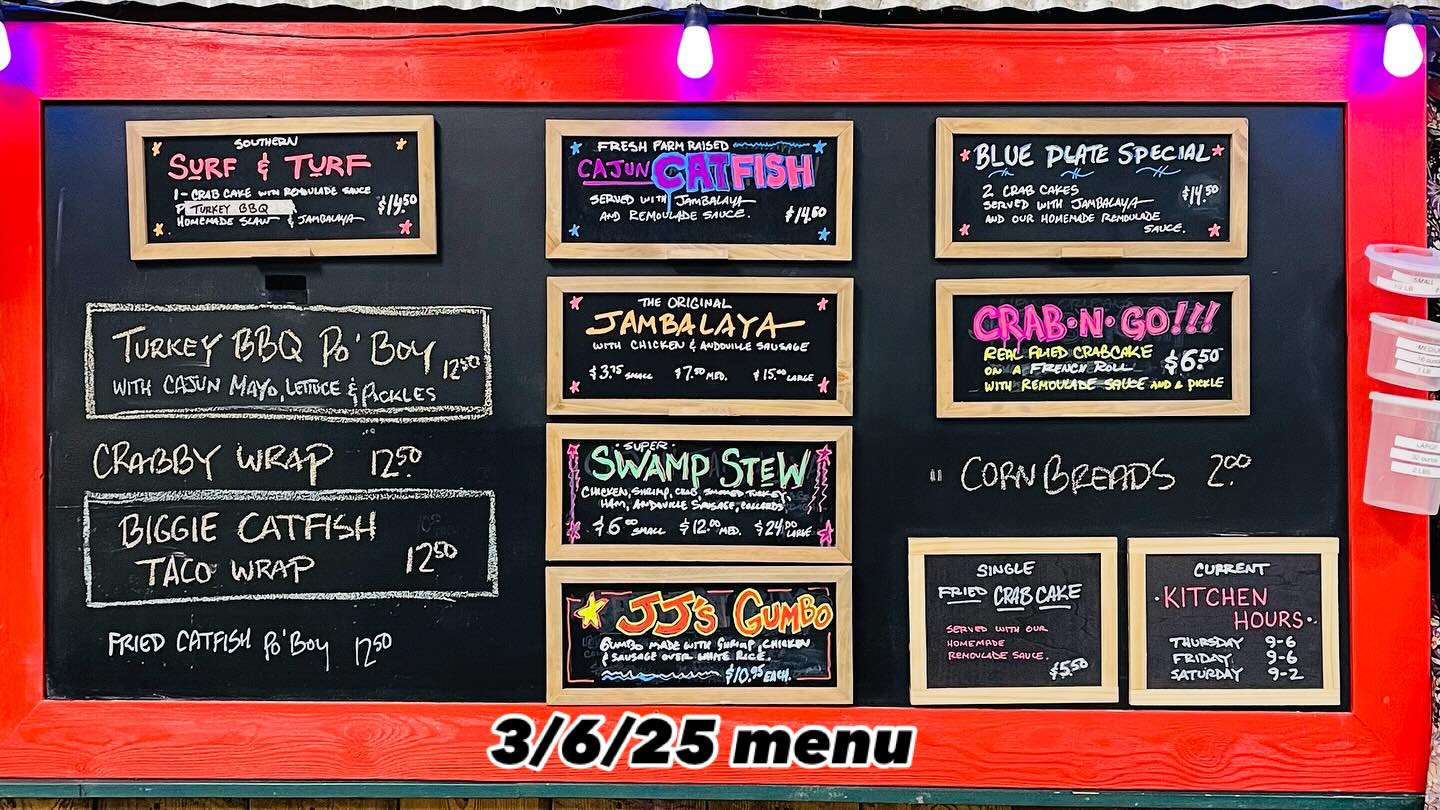 SOUTHERN
SURF & TURF
1 - CRAB CAKE WITH REMOULADE SAUCE
TURKEY BBQ
HOMEMADE SLAW & JAMBALAYA
$14.50
TURKEY BBQ PO' BOY 12.50
WITH CAJUN MAYO, LETTUCE & PICKLES
CRABBY WRAP 12.50
BIGGIE CATFISH
TACO WRAP 12.50
FRIED CATFISH PO' BOY 12.50
FRESH FARM RAISED
CAJUN CATFISH
SERVED WITH JAMBALAYA
AND REMOULADE SAUCE. $14.50
THE ORIGINAL
JAMBALAYA
WITH CHICKEN & ANDOUILLE SAUSAGE
$3.75 SMALL $7.50 MED. $15.00 LARGE
SUPER
SWAMP STEW
CHICKEN, SHRIMP, CRAB, SMOKED TURKEY,
HAM, ANDOUILLE SAUSAGE, COLLARDS
$6.00 SMALL $12.00 MED. $24.00 LARGE
JJ'S GUMBO
GUMBO MADE WITH SHRIMP, CHICKEN
& SAUSAGE OVER WHITE RICE.
$10.95 EACH.
BLUE PLATE SPECIAL
2 CRAB CAKES
SERVED WITH JAMBALAYA
AND OUR HOMEMADE REMOULADE
SAUCE.
$14.50
CRAB·N·GO!!!
REAL FRIED CRABCAKE
ON A FRENCH ROLL $6.50
WITH REMOULADE SAUCE AND A PICKLE
" CORNBREADS 2.00
SINGLE
FRIED CRAB CAKE
SERVED WITH OUR
HOMEMADE
REMOULADE SAUCE.
$5.50
CURRENT
·KITCHEN
HOURS·
THURSDAY 9-6
FRIDAY 9-6
SATURDAY 9-2
SMALL
LARGE
32 ounce
2 LBS
3/6/25 menu